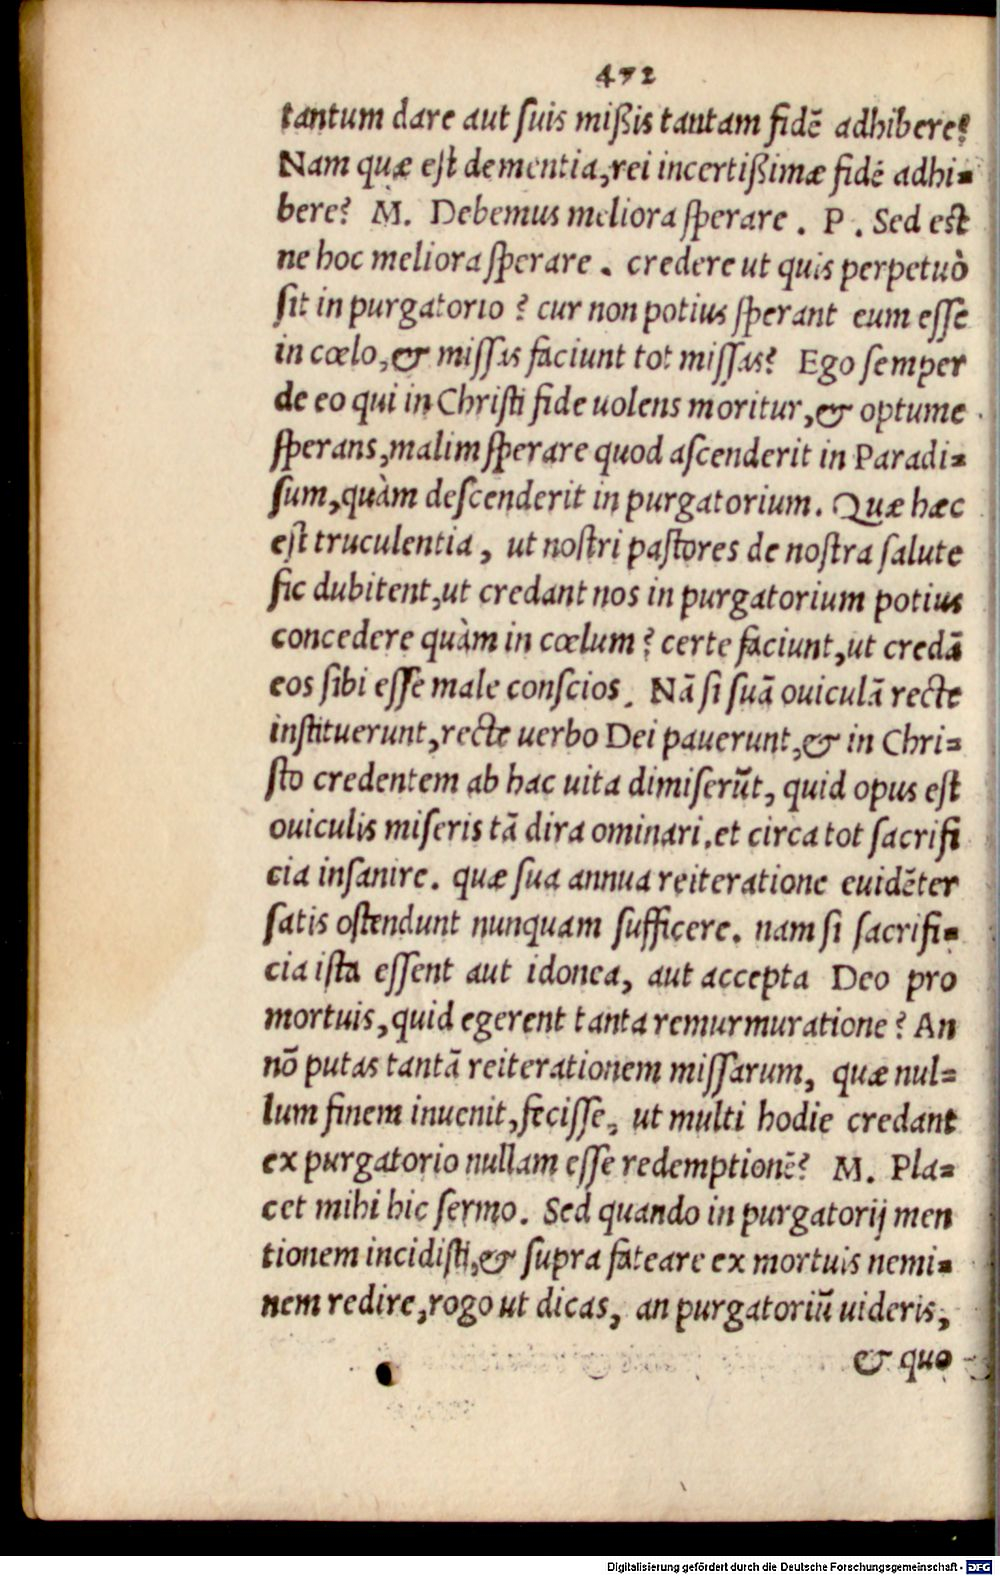 472
tantum dare aut ſuis mißis tantam fidē adhibere?
Nam quæ eſt dementia, rei incertißimæ fidē adhi-
bere? M. Debemus meliora ſperare. P. Sed est
ne hoc meliora ſperare. credere ut quis perpetuò
ſit in purgatorio? cur non potius ſperant eum eſſe
in cœlo, & miſſas faciunt tot miſſas? Ego ſemper
de eo qui in Chriſti fide uolens moritur, & optume
ſperans, malim ſperare quod aſcenderit in Paradi-
ſum, quàm deſcenderit in purgatorium. Quæ hæc
eſt truculentia, ut noſtri paſtores de noſtra ſalute
ſic dubitent, ut credant nos in purgatorium potius
concedere quàm in cœlum? certe faciunt, ut credā
eos ſibi eſſe male conſcios. Nā ſi ſuā ouiculā recte
inſtituerunt, recte uerbo Dei pauerunt, & in Chri-
ſto credentem ab hac uita dimiſerūt, quid opus eſt
ouiculis miſeris tā dira ominari. et circa tot ſacrifi
cia inſanire. quæ ſua annua reiteratione euidēter
ſatis oſtendunt nunquam ſufficere. nam ſi ſacrifi-
cia iſta eſſent aut idonea, aut accepta Deo pro
mortuis, quid egerent tanta remurmuratione? An
nō putas tantā reiterationem miſſarum, quæ nul-
lum finem inuenit, feciſſe, ut multi hodie credant
ex purgatorio nullam eſſe redemptionē? M. Pla-
cet mihi hic ſermo. Sed quando in purgatorij men
tionem incidiſti, & ſupra fateare ex mortuis nemi-
nem redire, rogo ut dicas, an purgatoriū uideris,
& quo
Digitalisierung gefördert durch die Deutsche Forschungsgemeinschaft - DFG